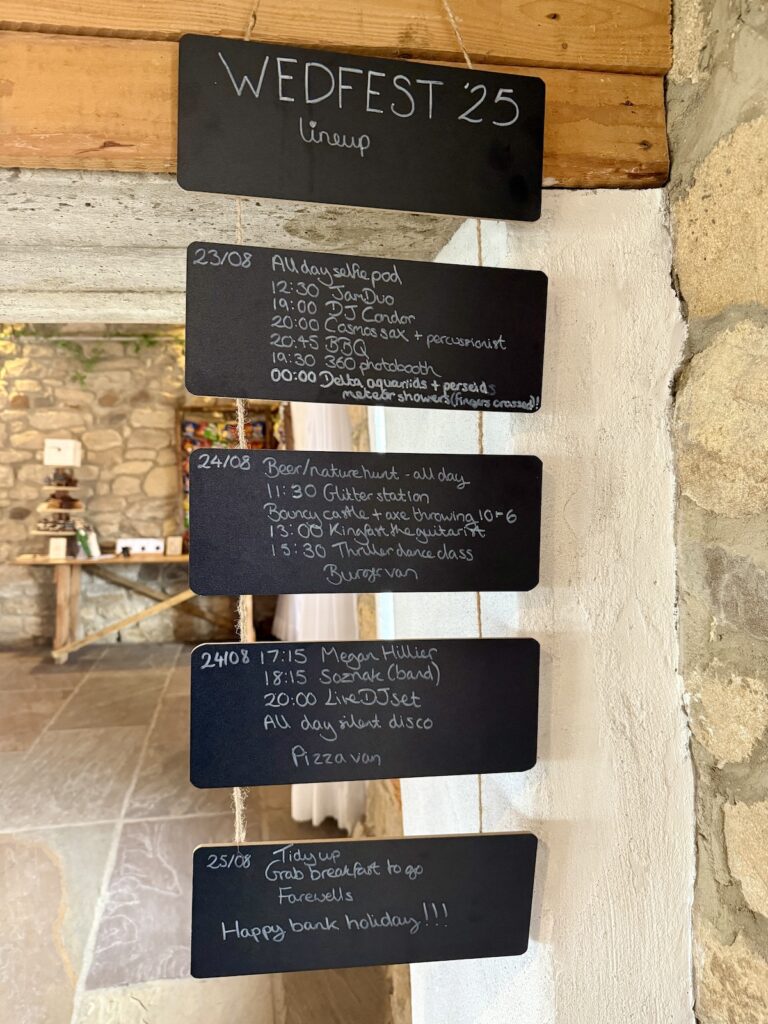 WEDFEST '25
lineup
23/08 All day selfie pod
12:30 JamDuo
19:00 DJ Condor
20:00 Cosmos sax + percussionist
20:45 BBQ
19:30 360 photobooth
00:00 Delta aquariids + perseids
meteor showers (fingers crossed)!
24/08 Beer/nature hunt - all day
11:30 Glitter station
Bouncy castle + axe throwing 10-6
13:00 Kingfast the guitarist
15:30 Thriller dance class
Burger van
24/08 17:15 Megan Hillier
18:15 Soznak (band)
20:00 Live DJ set
All day silent disco
Pizza van
25/08 Tidy up
Grab breakfast to go
Farewells
Happy bank holiday!!!